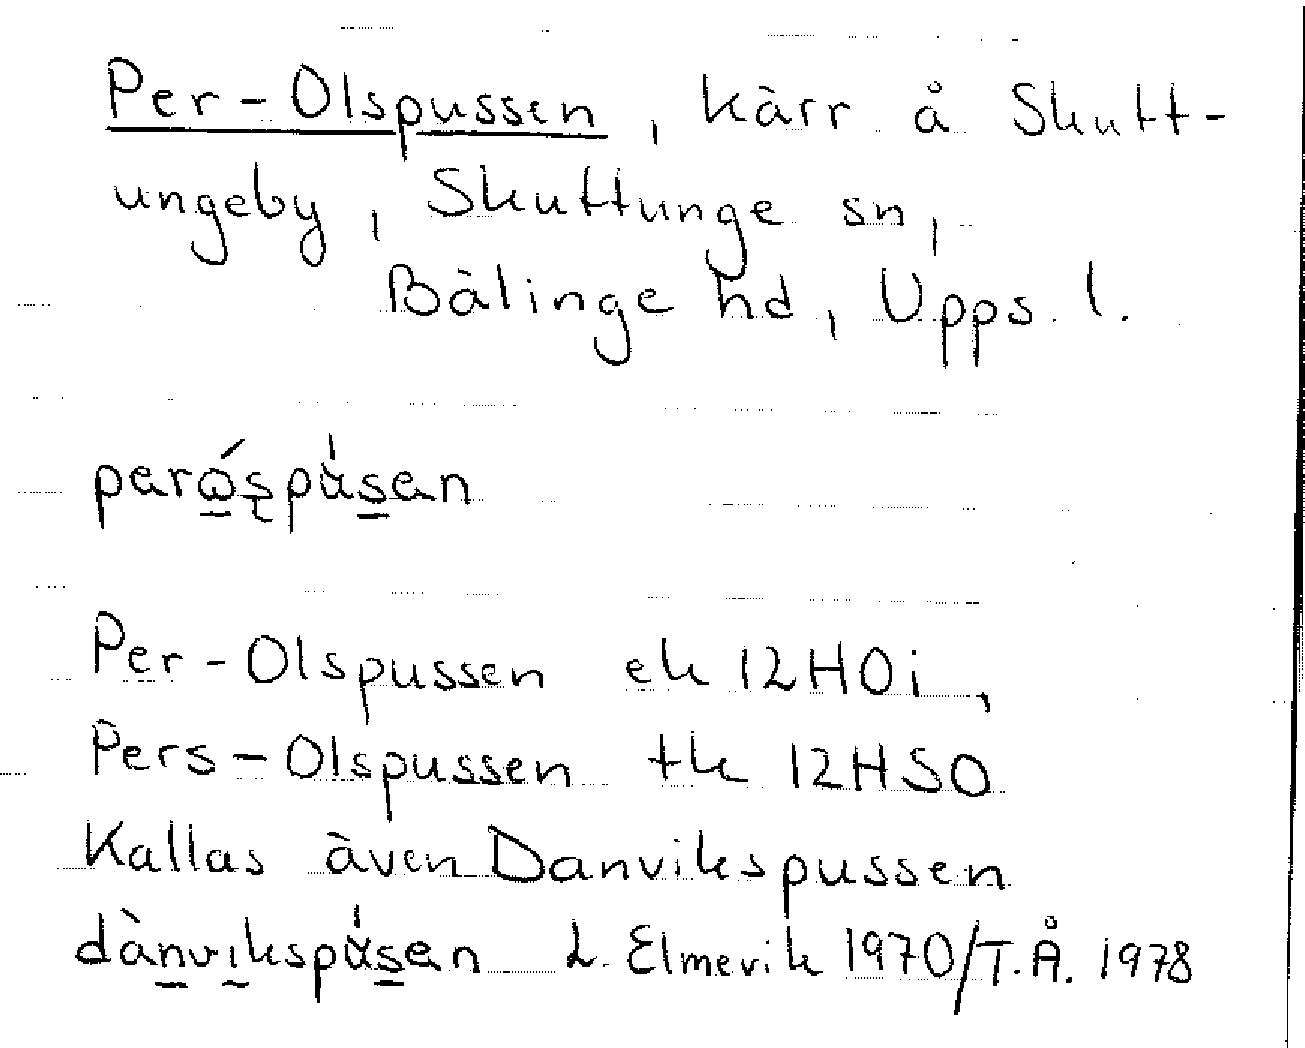 Per-Olspussen, kärr å Skutt-
ungeby, Skuttunge sn,
Bälinge hd, Upps. l.
Per-Olspussen ek 12H0i,
Pers-Olspussen tk 12HSO
Kallas även Danvikspussen
L. Elmevik 1970/T.Å. 1978